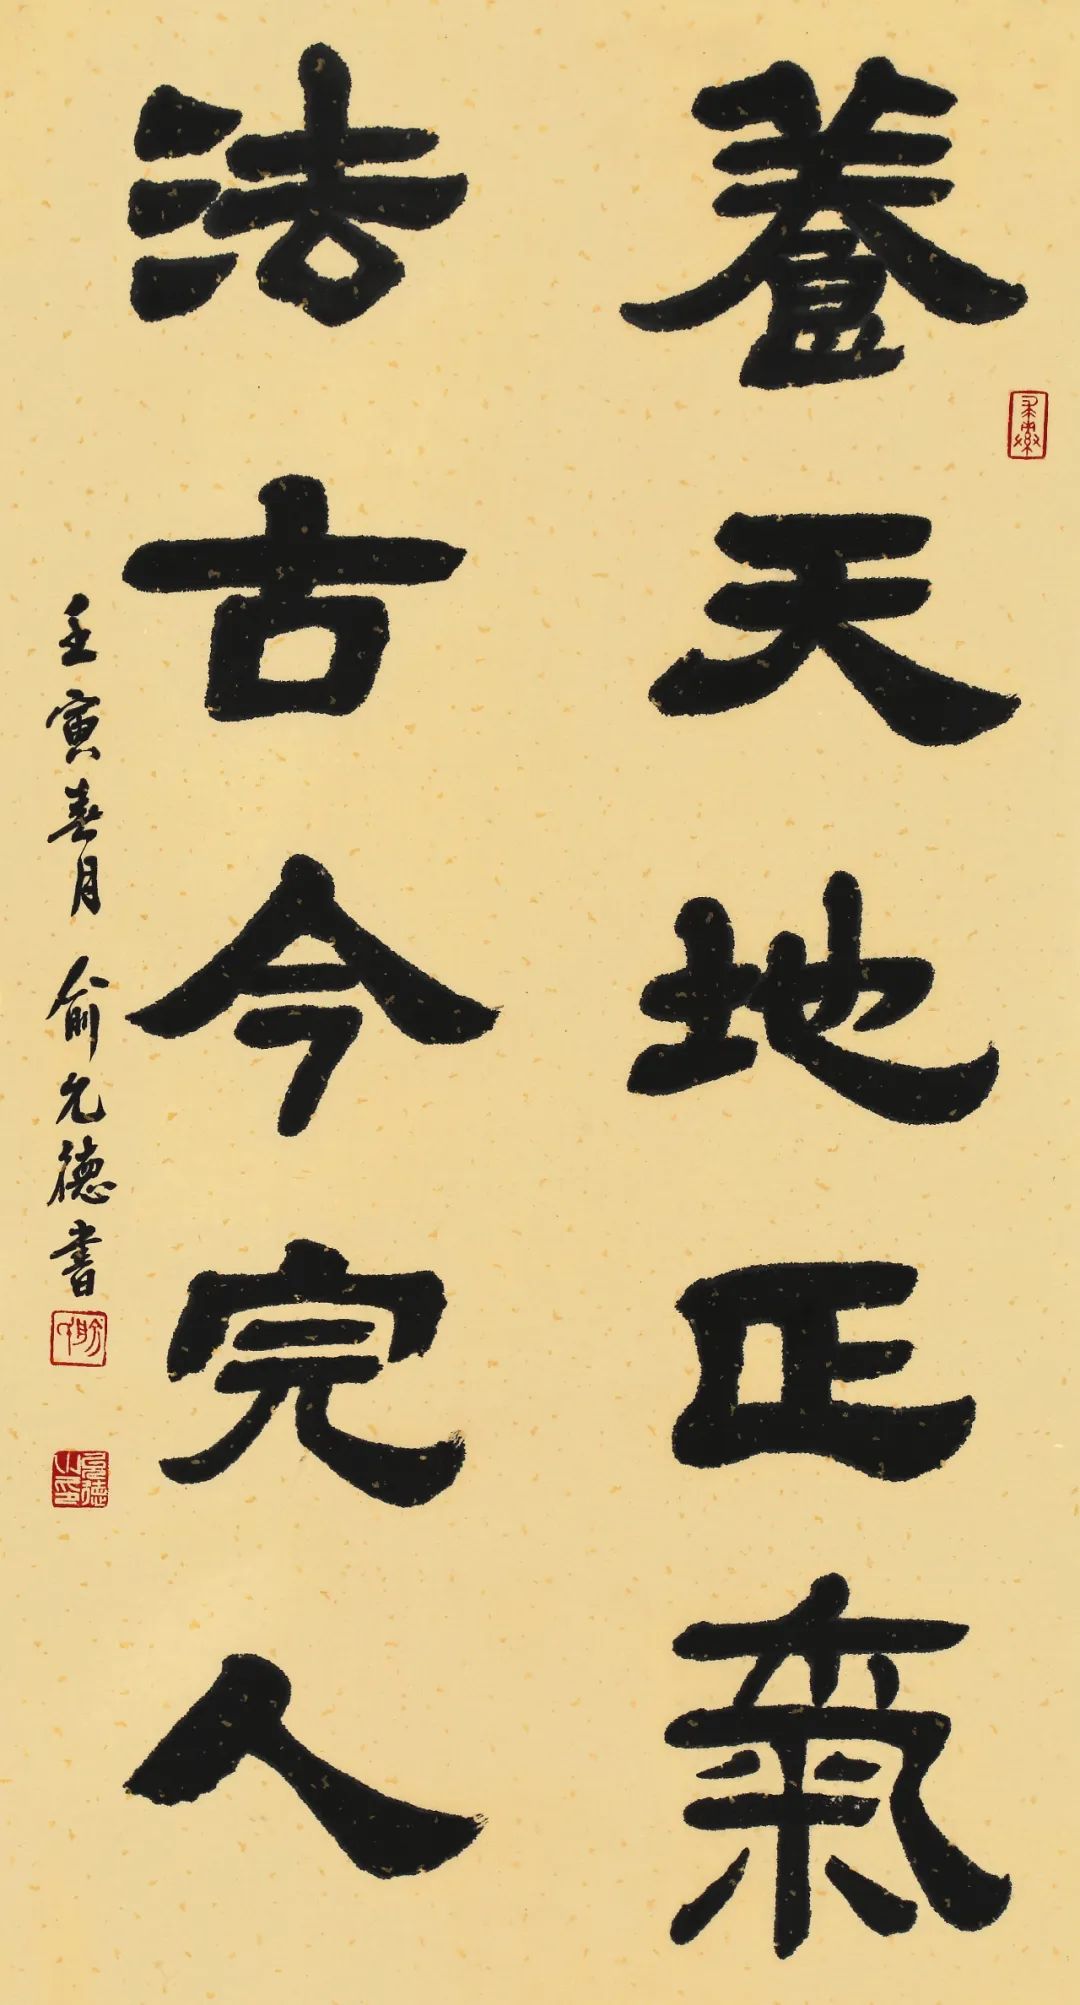 養天地正氣
法古今完人
壬寅春月 俞允德書